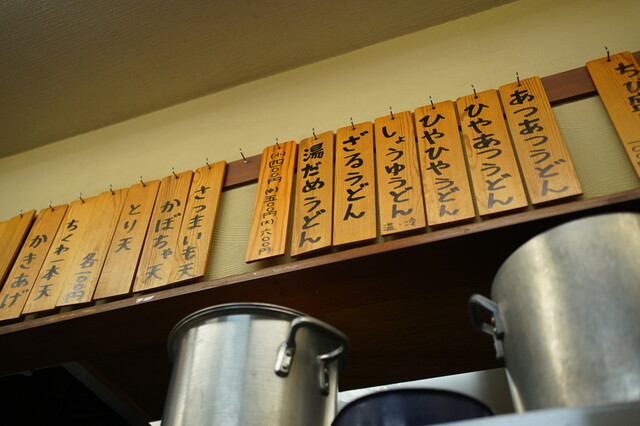 ちび
あつあつうどん
ひやあつうどん
ひやひやうどん
しょうゆうどん
温・冷
ざるうどん
湯だめうどん
(小)四〇〇円 (中)五〇〇円 (大)六〇〇円
さつまいも天
かぼちゃ天
とり天
各一〇〇円
ちくわ一本天
かきあげ